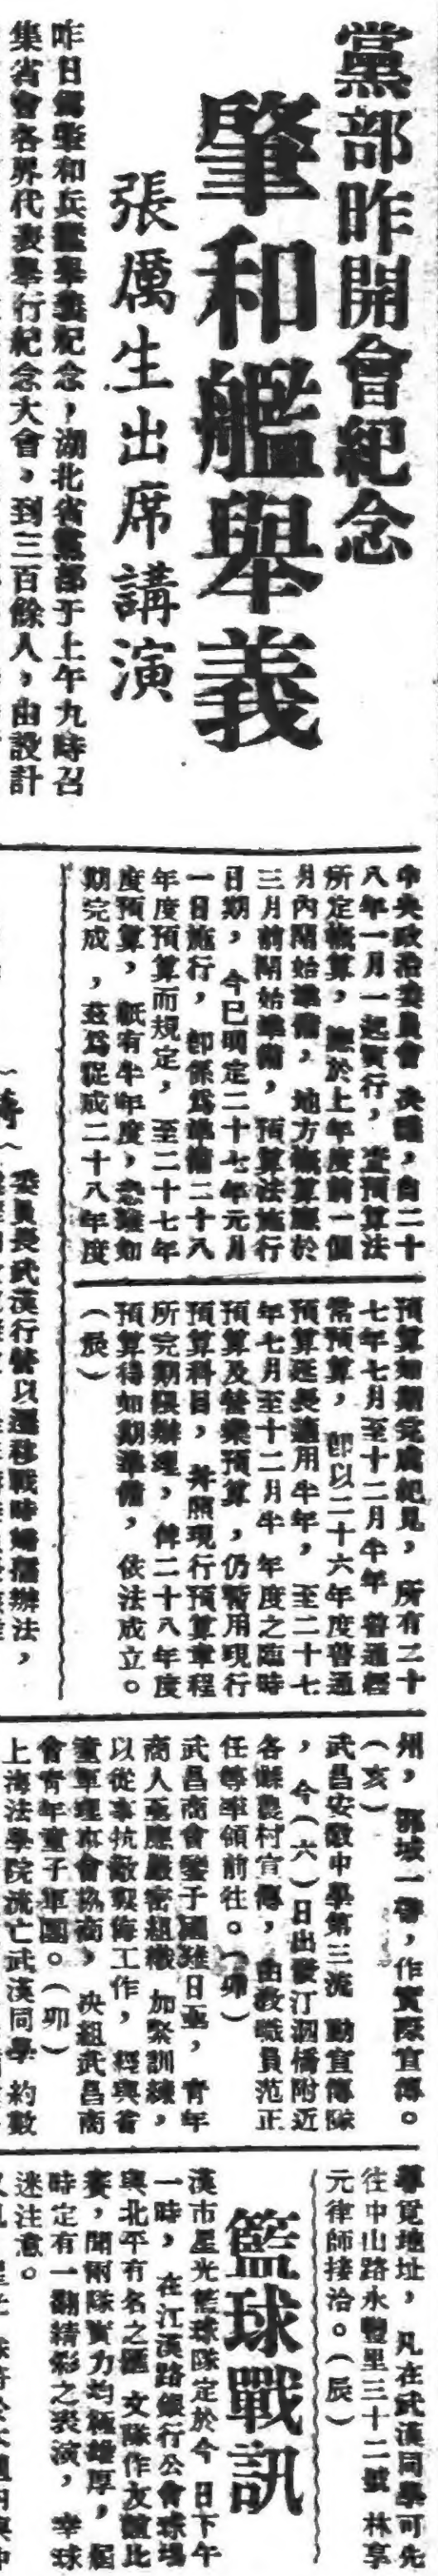 黨部昨開會紀念
肇和艦舉義
張厲生出席講演
昨日爲肇和兵艦舉義紀念，湖北省黨部于上午九時召
集省會各界代表舉行紀念大會，到三百餘人，由設計
中央政治委員會決議，自二十
八年一月一起實行，查預算法
所定概算，應於上年度前一個
月內開始準備，地方概算應於
三月前開始準備，預算法施行
日期，今已明定二十七年元月
一日施行，卽係爲準備二十八
年度預算而規定，至二十七年
度預算，祇有半年度，急難如
期完成，茲爲促成二十八年度
預算如期完成起見，所有二十
七年七月至十二月半年普通經
常預算，卽以二十六年度普通
預算延長適用半年，至二十七
年七月至十二月半年度之臨時
預算及營業預算，仍暫用現行
預算科目，并照現行預算章程
所定期限辦理，俾二十八年度
預算得如期準備，依法成立。
（辰）
委員長武漢行營以遷移戰時辦法，
州，鄂城一帶，作實際宣傳。
（亥）
武昌安徽中學第三流動宣傳隊
，今（六）日出發汀泗橋附近
各縣農村宣傳，由敎職員范正
任等率領前往。（卯）
武昌商會鑒于國難日亟，青年
商人亟應嚴密組織加緊訓練，
以從事抗敵禦侮工作，經與省
童軍理事會協商，決組武昌商
會青年童子軍團。（卯）
上海法學院流亡武漢同學約數
尋覓地址，凡在武漢同學可先
往中山路永豐里三十二號林享
元律師接洽。（辰）
籃球戰訊
漢市星光籃球隊定於今日下午
一時，在江漢路銀行公會球場
與北平有名之匯文隊作友誼比
賽，聞兩隊實力均極雄厚，屆
時定有一翻精彩之表演，幸球
迷注意。